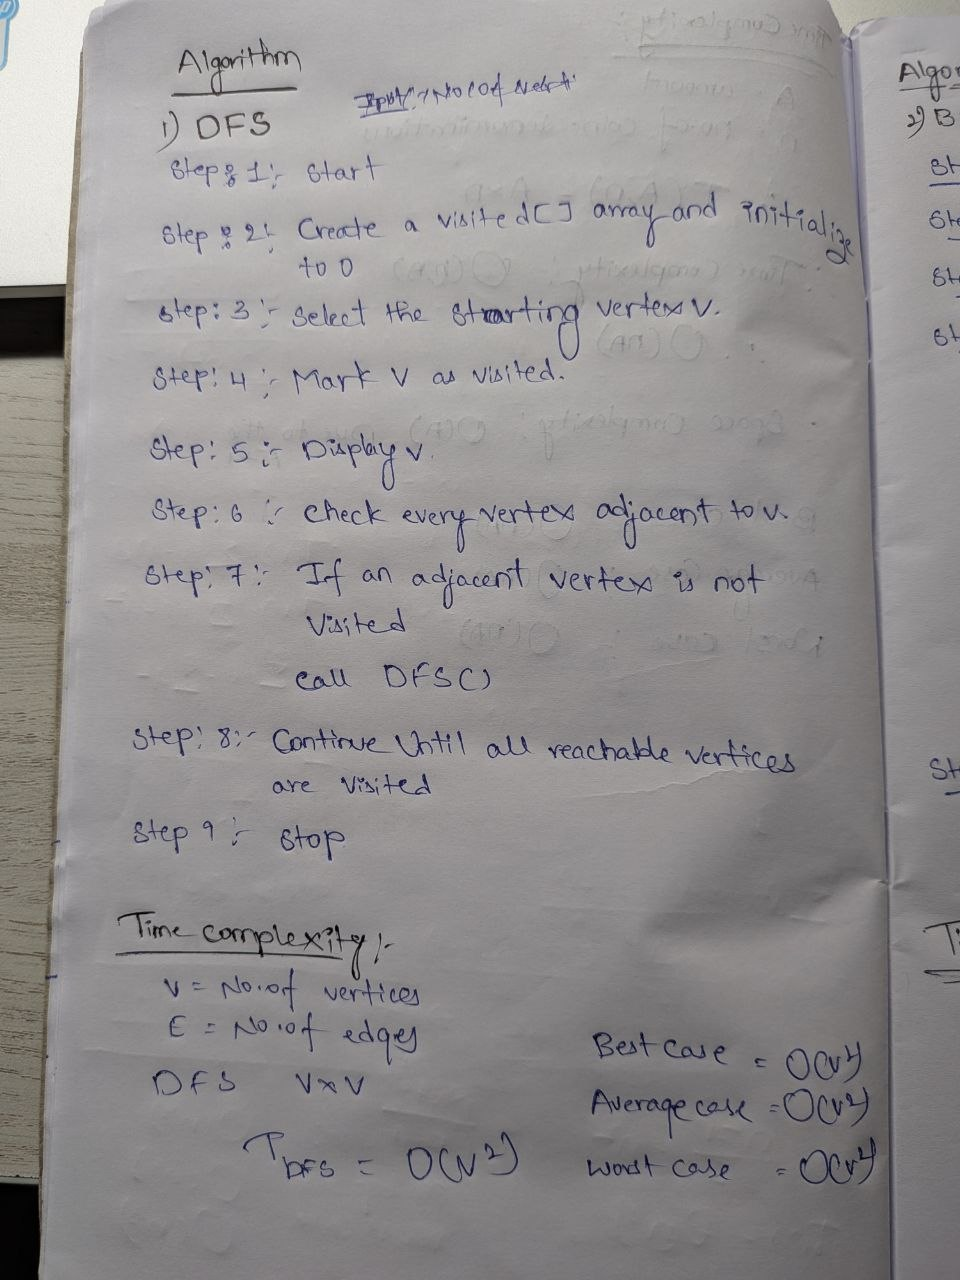 Algorithm
1) DFS
Step: 1:- Start
Step: 2:- Create a visited[] array and initialize
to 0
Step: 3:- Select the starting vertex v.
Step: 4:- Mark v as visited.
Step: 5:- Display v.
Step: 6:- check every vertex adjacent to v.
Step: 7:- If an adjacent vertex is not
visited
call DFS()
Step: 8:- Continue Until all reachable vertices
are visited
Step 9:- Stop
Time complexity:-
V = No. of vertices
E = No. of edges
DFS V×V
T DFS = O(V²)
Best case = O(V²)
Average case = O(V²)
Worst case = O(V²)
Algor
2) B
St
Ste
Ste
St
St
Ti